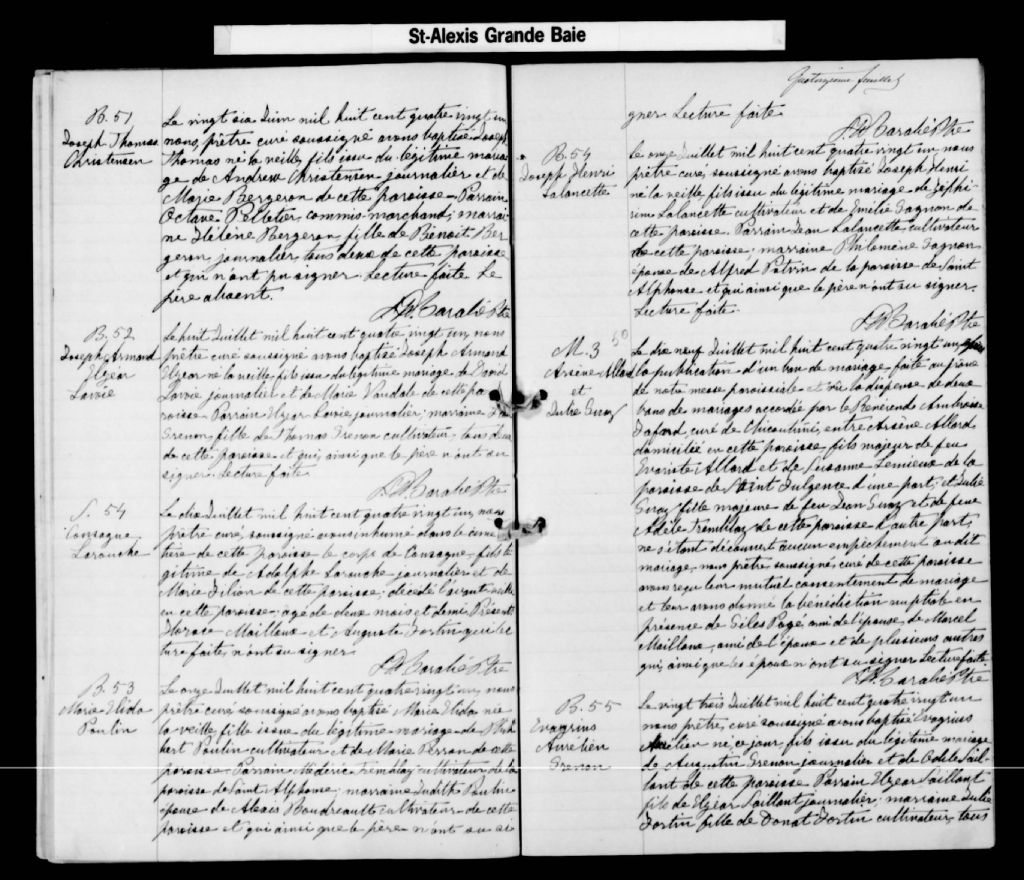 St-Alexis Grande Baie
B. 51
Joseph Thomas
Christensen
Le vingt six Juin mil huit cent quatre vingt un
nous, prêtre curé soussigné avons baptisé Joseph
Thomas né la veille, fils issu du légitime maria
ge de Andrew Christensen journalier et de
Marie Bergeron de cette paroisse. Parrain
Octave Pelletier, commis-marchand; marrai
ne Hélène Bergeron fille de Benoit Ber
geron, journalier, tous deux de cette paroisse
et qui n'ont pu signer. Lecture faite. Le
père absent.
Ptre
B. 52
Joseph Armand
Elzéar
Lavoie
Le huit Juillet mil huit cent quatre vingt un, nous
prêtre curé soussigné avons baptisé Joseph Armand
Elzéar né la veille, fils issu du légitime mariage de
Lavoie journalier et de Marie de cette pa
roisse. Parrain Elzéar Lavoie journalier; marraine
Grenon, fille de Thomas Grenon cultivateur, tous deux
de cette paroisse et qui, ainsi que le père n'ont su
signer. Lecture faite.
Ptre
S. 54
Consague
Larouche
Le dix Juillet mil huit cent quatre vingt un, nous
prêtre curé, soussigné avons inhumé dans le cime
tière de cette paroisse le corps de Consague, fils lé
gitime de Adolphe Larouche journalier et de
Marie Filion de cette paroisse, décédé l'avant veille
en cette paroisse, agé de deux mois et demi. Présents
Horace Mailloux et Auguste Fortin qui lec
ture faite, n'ont su signer.
Ptre
B. 53
Marie Elida
Poulin
Le onze Juillet mil huit cent quatre vingt un, nous
prêtre curé soussigné avons baptisé Marie Elida née
la veille, fille issue du légitime mariage de
bert Poulin cultivateur et de Marie Perron de cette
paroisse. Parrain Médéric Tremblay cultivateur de la
paroisse de Saint Alphonse; marraine Judith Poulin
épouse de Alexis Boudreault cultivateur de cette
paroisse et qui ainsi que le père n'ont su si
Quatorzième feuillet
gner Lecture faite
Ptre
B. 54
Joseph Henri
Lalancette
Le onze Juillet mil huit cent quatre vingt un nous
prêtre curé, soussigné avons baptisé Joseph Henri
né la veille fils issu du légitime mariage de Zéphi
rin Lalancette cultivateur et de Emilie Gagnon de
cette paroisse. Parrain Jean Lalancette cultivateur
de cette paroisse; marraine Philomène Gagnon
épouse de Alfred Potvin de la paroisse de Saint
Alphonse et qui ainsi que le père n'ont su signer.
Lecture faite.
Ptre
M. 3
Arsène Allard
et
Julie Guay
Le dix neuf Juillet mil huit cent quatre vingt un, après
la publication d'un ban de mariage faite au prône
de notre messe paroissiale et vu la dispense de deux
bans de mariages accordée par le Révérend Ambroise
Fafard, curé de Chicoutimi, entre Arsène Allard
domicilié en cette paroisse fils majeur de feu
Evariste Allard et de Susanne Lemieux de la
paroisse de Saint Fulgence d'une part, et Julie
Guay fille majeure de feu Jean Guay et de feue
Adèle Tremblay de cette paroisse d'autre part,
ne s'étant découvert aucun empêchement au dit
mariage, nous prêtre soussigné, curé de cette paroisse
avons reçu leur mutuel consentement de mariage
et leur avons donné la bénédiction nuptiale en
présence de Giles Pagé ami de l'épouse, de Marcel
Mailloux, ami de l'époux et de plusieurs autres
qui, ainsi que les époux n'ont su signer. Lecture faite
Ptre
B. 55
Evagrius
Aurélien
Grenon
Le vingt trois Juillet mil huit cent quatre vingt un
nous prêtre, curé soussigné avons baptisé Evagrius
Aurélien né ce jour, fils issu du légitime mariage
de Augustin Grenon journalier et de Odile Sail
lant de cette paroisse. Parrain Elzéar Saillant
fils de Elzéar Saillant journalier; marraine Julie
Fortin fille de Donat Fortin cultivateur, tous